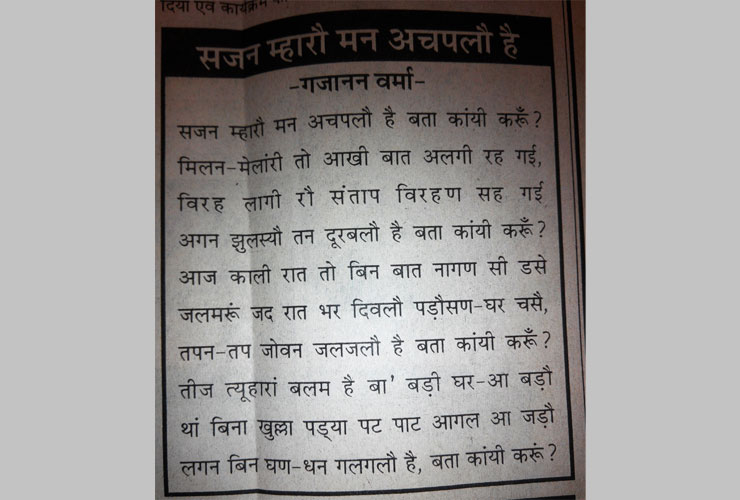 दिया एवं कार्यक्रम
सजन म्हारौ मन अचपलौ है
-गजानन वर्मा-
सजन म्हारौ मन अचपलौ है बता कांयी करूँ?
मिलन-मेलांरी तो आखी बात अलगी रह गई,
विरह लागी रौ संताप विरहण सह गई
अगन झुलस्यौ तन दूरबलौ है बता कांयी करूँ?
आज काली रात तो बिन बात नागण सी डसे
जलमरूं जद रात भर दिवलौ पड़ौसण-घर चसै,
तपन-तप जोवन जलजलौ है बता कांयी करूँ?
तीज त्यूहारां बलम है बा' बड़ी घर-आ बड़ौ
थां बिना खुल्ला पड्या पट पाट आगल आ जड़ौ
लगन बिन घण-धन गलगलौ है, बता कांयी करूं?